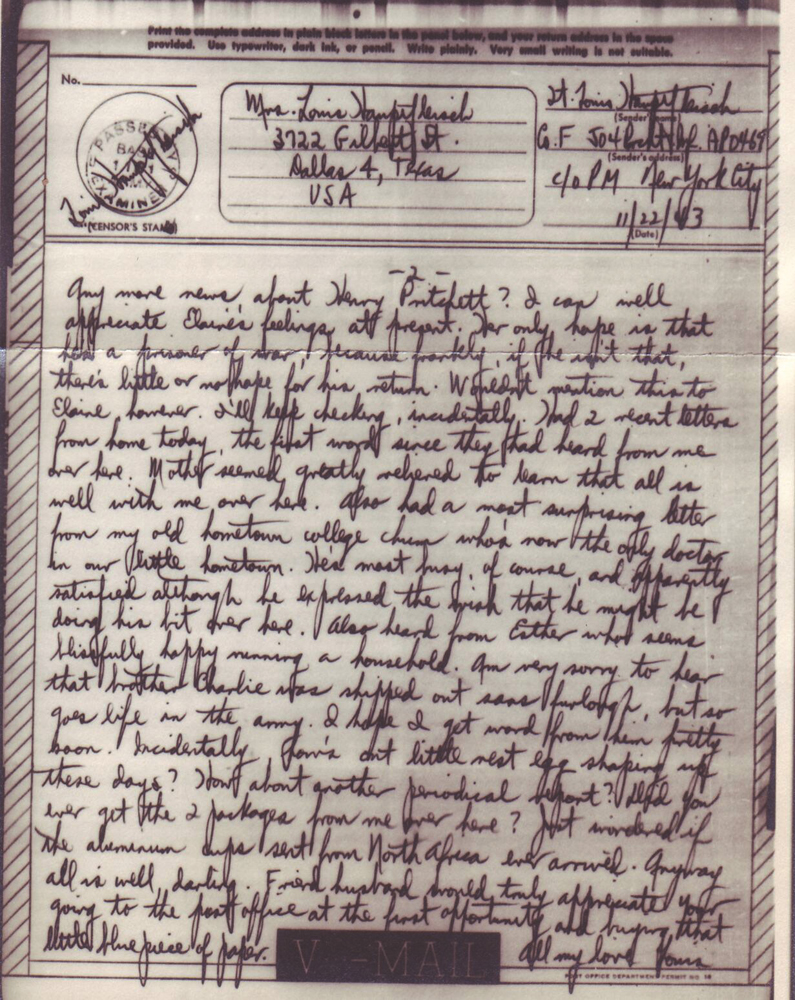 Print the complete address in plain block letters in the panel below, and your return address in the space
provided. Use typewriter, dark ink, or pencil. Write plainly. Very small writing is not suitable.
No.
PASSED BY
EXAMINER
(CENSOR'S STAMP)
Mrs. Louis Haupfleisch
3722 Gilbert St.
Dallas 4, Texas
USA
Lt. Louis Haupfleisch
(Sender's name)
Co. F 504 Prcht Inf. APO 469
(Sender's address)
c/o PM New York City
11/22/43
(Date)
-2-
Any more news about Henry Pritchett? I can well
appreciate Elaine's feelings at present. Her only hope is that
he's a prisoner of war, because frankly, if he isn't that,
there's little or no hope for his return. Wouldn't mention this to
Elaine, however. I'll keep checking, incidentally. Had 2 recent letters
from home today, the first word since they had heard from me
over here. Mother seemed greatly relieved to learn that all is
well with me over here. Also had a most surprising letter
from my old hometown college chum who's now the only doctor
in our little hometown. He's most busy, of course, and apparently
satisfied although he expressed the wish that he might be
doing his bit over here. Also heard from Esther who seems
blissfully happy running a household. Am very sorry to hear
that brother Charlie was shipped out sans furlough, but so
goes life in the army. I hope I get word from him pretty
soon. Incidentally, how's our little nest egg shaping up
these days? How about another periodical report? Did you
ever get the 2 packages from me over here? Just wondered if
the aluminum cups I sent from North Africa ever arrived. Anyway
all is well, darling. Friend husband would truly appreciate your
going to the post office at the first opportunity and buying that
little blue piece of paper.
All my love Louis
V-MAIL
POST OFFICE DEPARTMENT PERMIT NO. 18